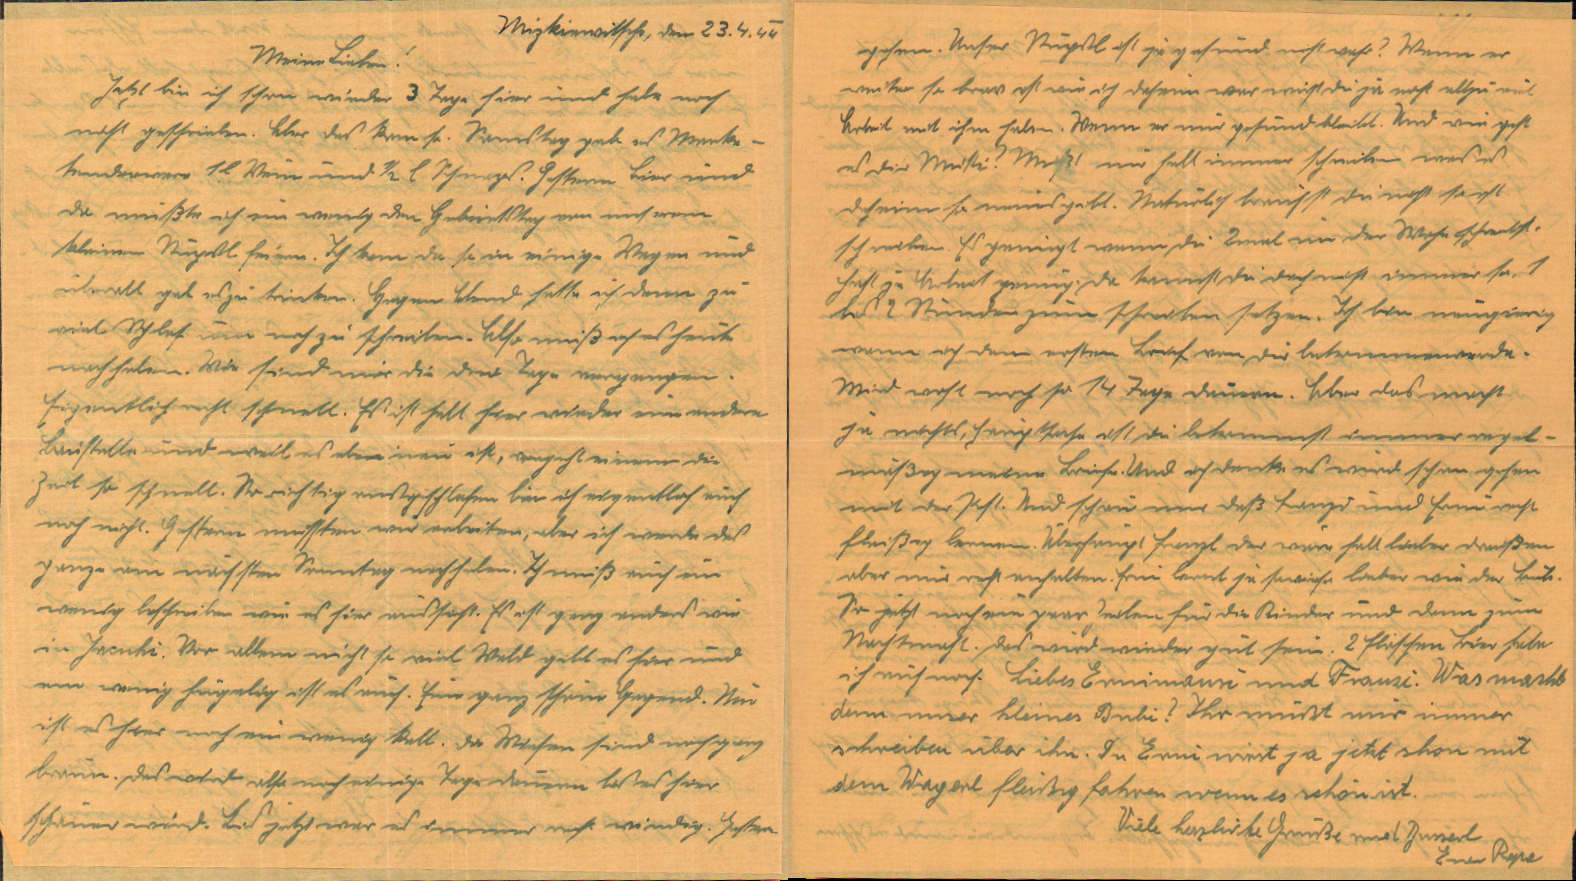 Mizkiewitsche, den 23.4.44
Meine Lieben!
Jetzt bin ich schon wieder 3 Tage hier und habe noch
nicht geschrieben. Aber das kam so. Samstag gab es Marke-
tenderware 1 l Wein und ½ l Schnaps. Gestern Bier und
da mußte ich ein wenig den Geburtstag von unserem
kleinen Stupsl feiern. Ich kam da so in einige Wagen und
überall gab es zu trinken. Gegen Abend hatte ich dann zu
viel Schlaf um noch zu schreiben. Also muß ich es heute
nachholen. Wie sind mir die drei Tage vergangen.
Eigentlich recht schnell. Es ist halt hier wieder eine andere
Baustelle und weil es eben neu ist, vergeht einem die
Zeit so schnell. So richtig ausgeschlafen bin ich eigentlich auch
noch nicht. Gestern mußten wir arbeiten, aber ich werde das
ganze am nächsten Sonntag nachholen. Ich muß euch ein
wenig beschreiben wie es hier aussieht. Es ist ganz anders wie
in . Vor allem nicht so viel Wald gibt es hier und
ein wenig hügelig ist es auch. Eine ganz schöne Gegend. Nur
ist es hier noch ein wenig kalt. Die Wiesen sind noch ganz
braun. Das wird also noch einige Tage dauern bis es hier
schöner wird. Bis jetzt war es immer recht windig. Gestern
gehen. Unser Stupsl ist ja gesund nicht wahr? Wenn er
weiter so brav ist wie ich daheim war wirst du ja nicht allzu viel
Arbeit mit ihm haben. Wenn er nur gesund bleibt. Und wie geht
es dir Mutti? Mußt mir halt immer schreiben was es
daheim so neues gibt. Natürlich brauchst du nicht so oft
schreiben. Es genügt wenn du 2mal in der Woche schreibst.
Hast ja Arbeit genug. Da kannst du dich nicht immer so 1
bis 2 Stunden zum schreiben setzen. Ich bin neugierig
wann ich den ersten Brief von dir bekommen werde.
Wird wohl noch so 14 Tage dauern. Aber das macht
ja nichts, Hauptsache ist du bekommst immer regel-
mäßig meine Briefe. Und ich denke es wird schon gehen
mit der Post. Und schau nur daß Franzi und Erni recht
fleißig lernen. Überhaupt Franzl der wäre halt lieber draußen
aber nur recht anhalten. Erni lernt ja sowieso lieber wie der Bub.
So jetzt noch ein paar Zeilen für die Kinder und dann zum
Nachtmahl. Das wird wieder gut sein. 2 Flaschen Bier habe
ich auch noch. Liebes Ernimausi und Franzi. Was macht
denn unser kleines Bubi? Ihr müßt mir immer
schreiben über ihn. Du Erni wirst ja jetzt schon mit
dem Wagerl fleißig fahren wenn es schön ist.
Viele herzliche Grüße und Busserl
Euer Papa